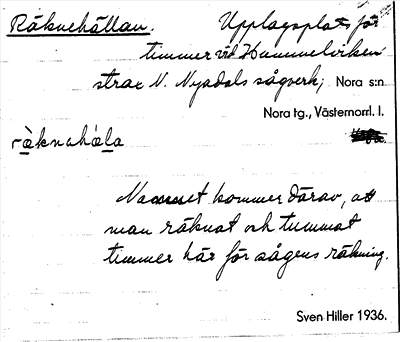 Räknehällan. Upplagsplats för
timmer vid Hummelviken
strax N. Nyadals sågverk; Nora s:n
Nora tg., Västernorrl. l.
räknahäla
Namnet kommer därav, att
man räknat och tummat
timmer här för sågens räkning.
Sven Hiller 1936.